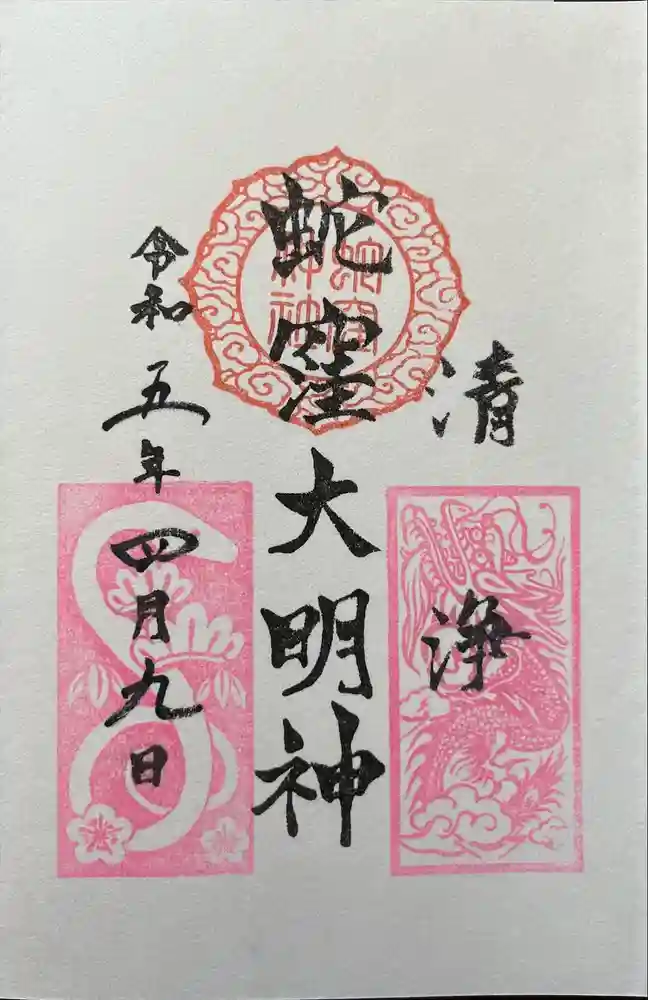 清浄
蛇窪大明神
令和五年四月九日
蛇窪
神社